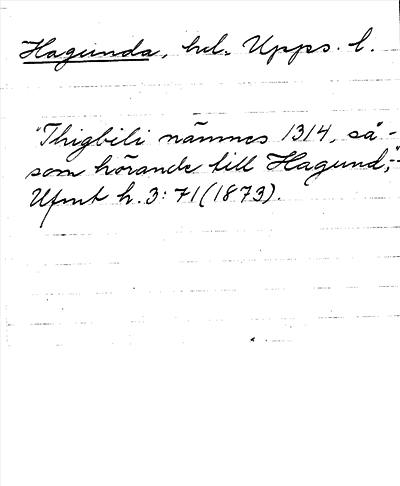 Hagunda, hd. Upps. l.
"Thigbili nämnes 1314, så-
som hörande till Hagund,"-
Ufmt h. 3: 71 (1873).